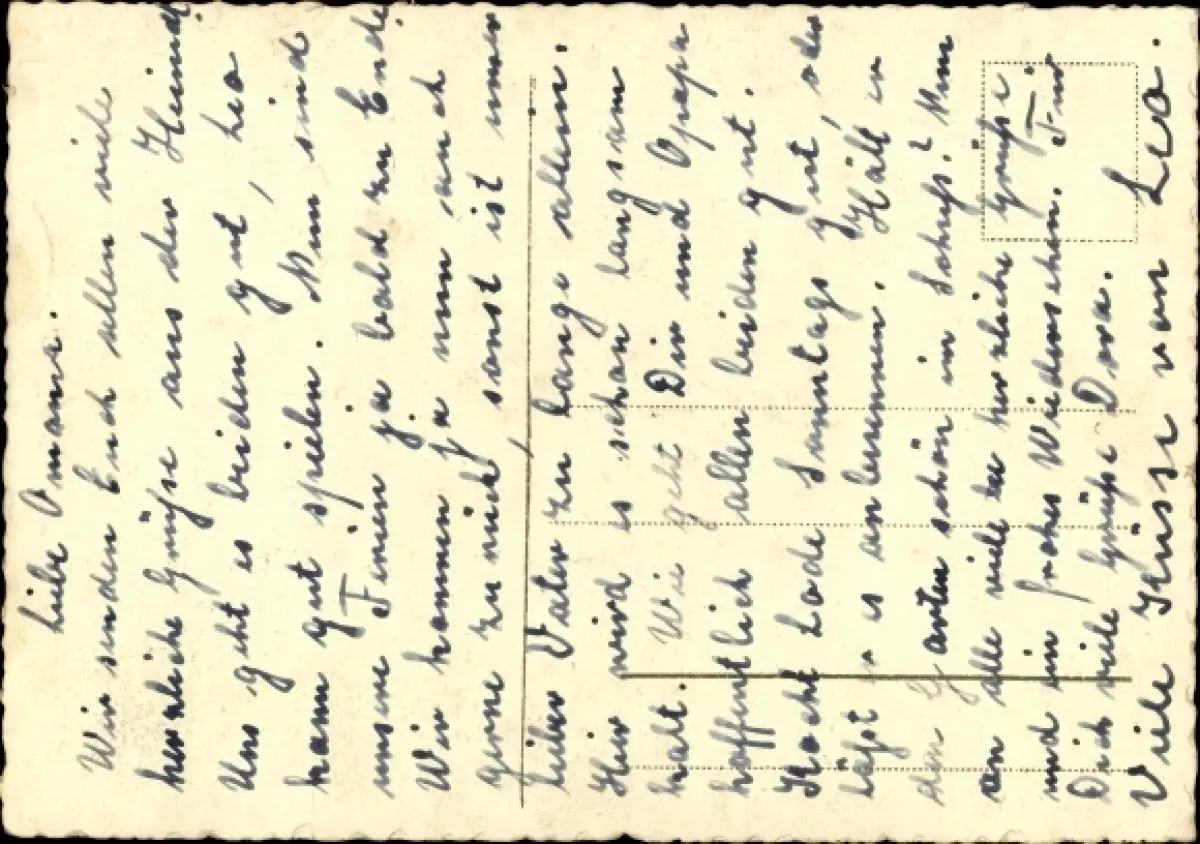 Liebe Omama.
Wir senden Euch allen viele
herzliche Grüße aus der Heimat
Uns geht es beiden gut, Leo
kann gut spielen. Nun sind
unsere Ferien ja bald zu Ende
Wir kommen ja nun auch
gerne zurück, sonst ist unser
lieber Vater zu lange allein.
Hier wird es schon langsam
kalt. Wie geht Dir und Opapa
hoffentlich allen beiden gut.
Kocht Lode Sonntags gut, oder
läßt er es anbrennen. Hält er
den Garten schön in Schuß? Nun
an alle viele herzliche Grüße
und ein frohes Wiedersehen. Für
Dich viele Grüße Dora.
Viele Küsse von Leo.